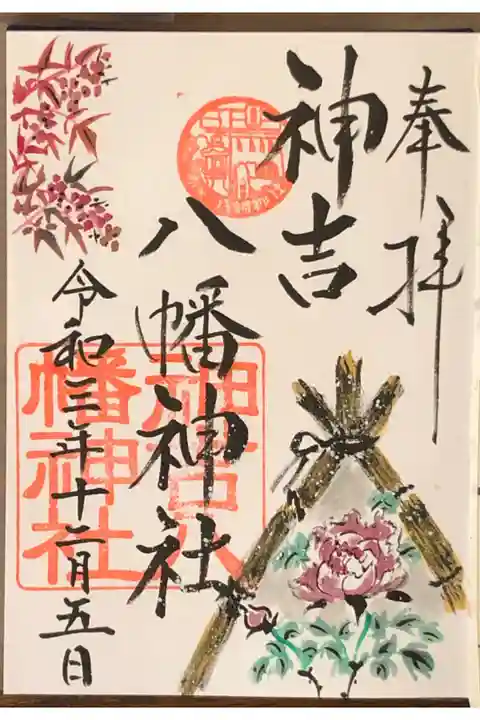 奉拝
神吉
八幡神社
令和三年十二月五日
神吉八
幡神社